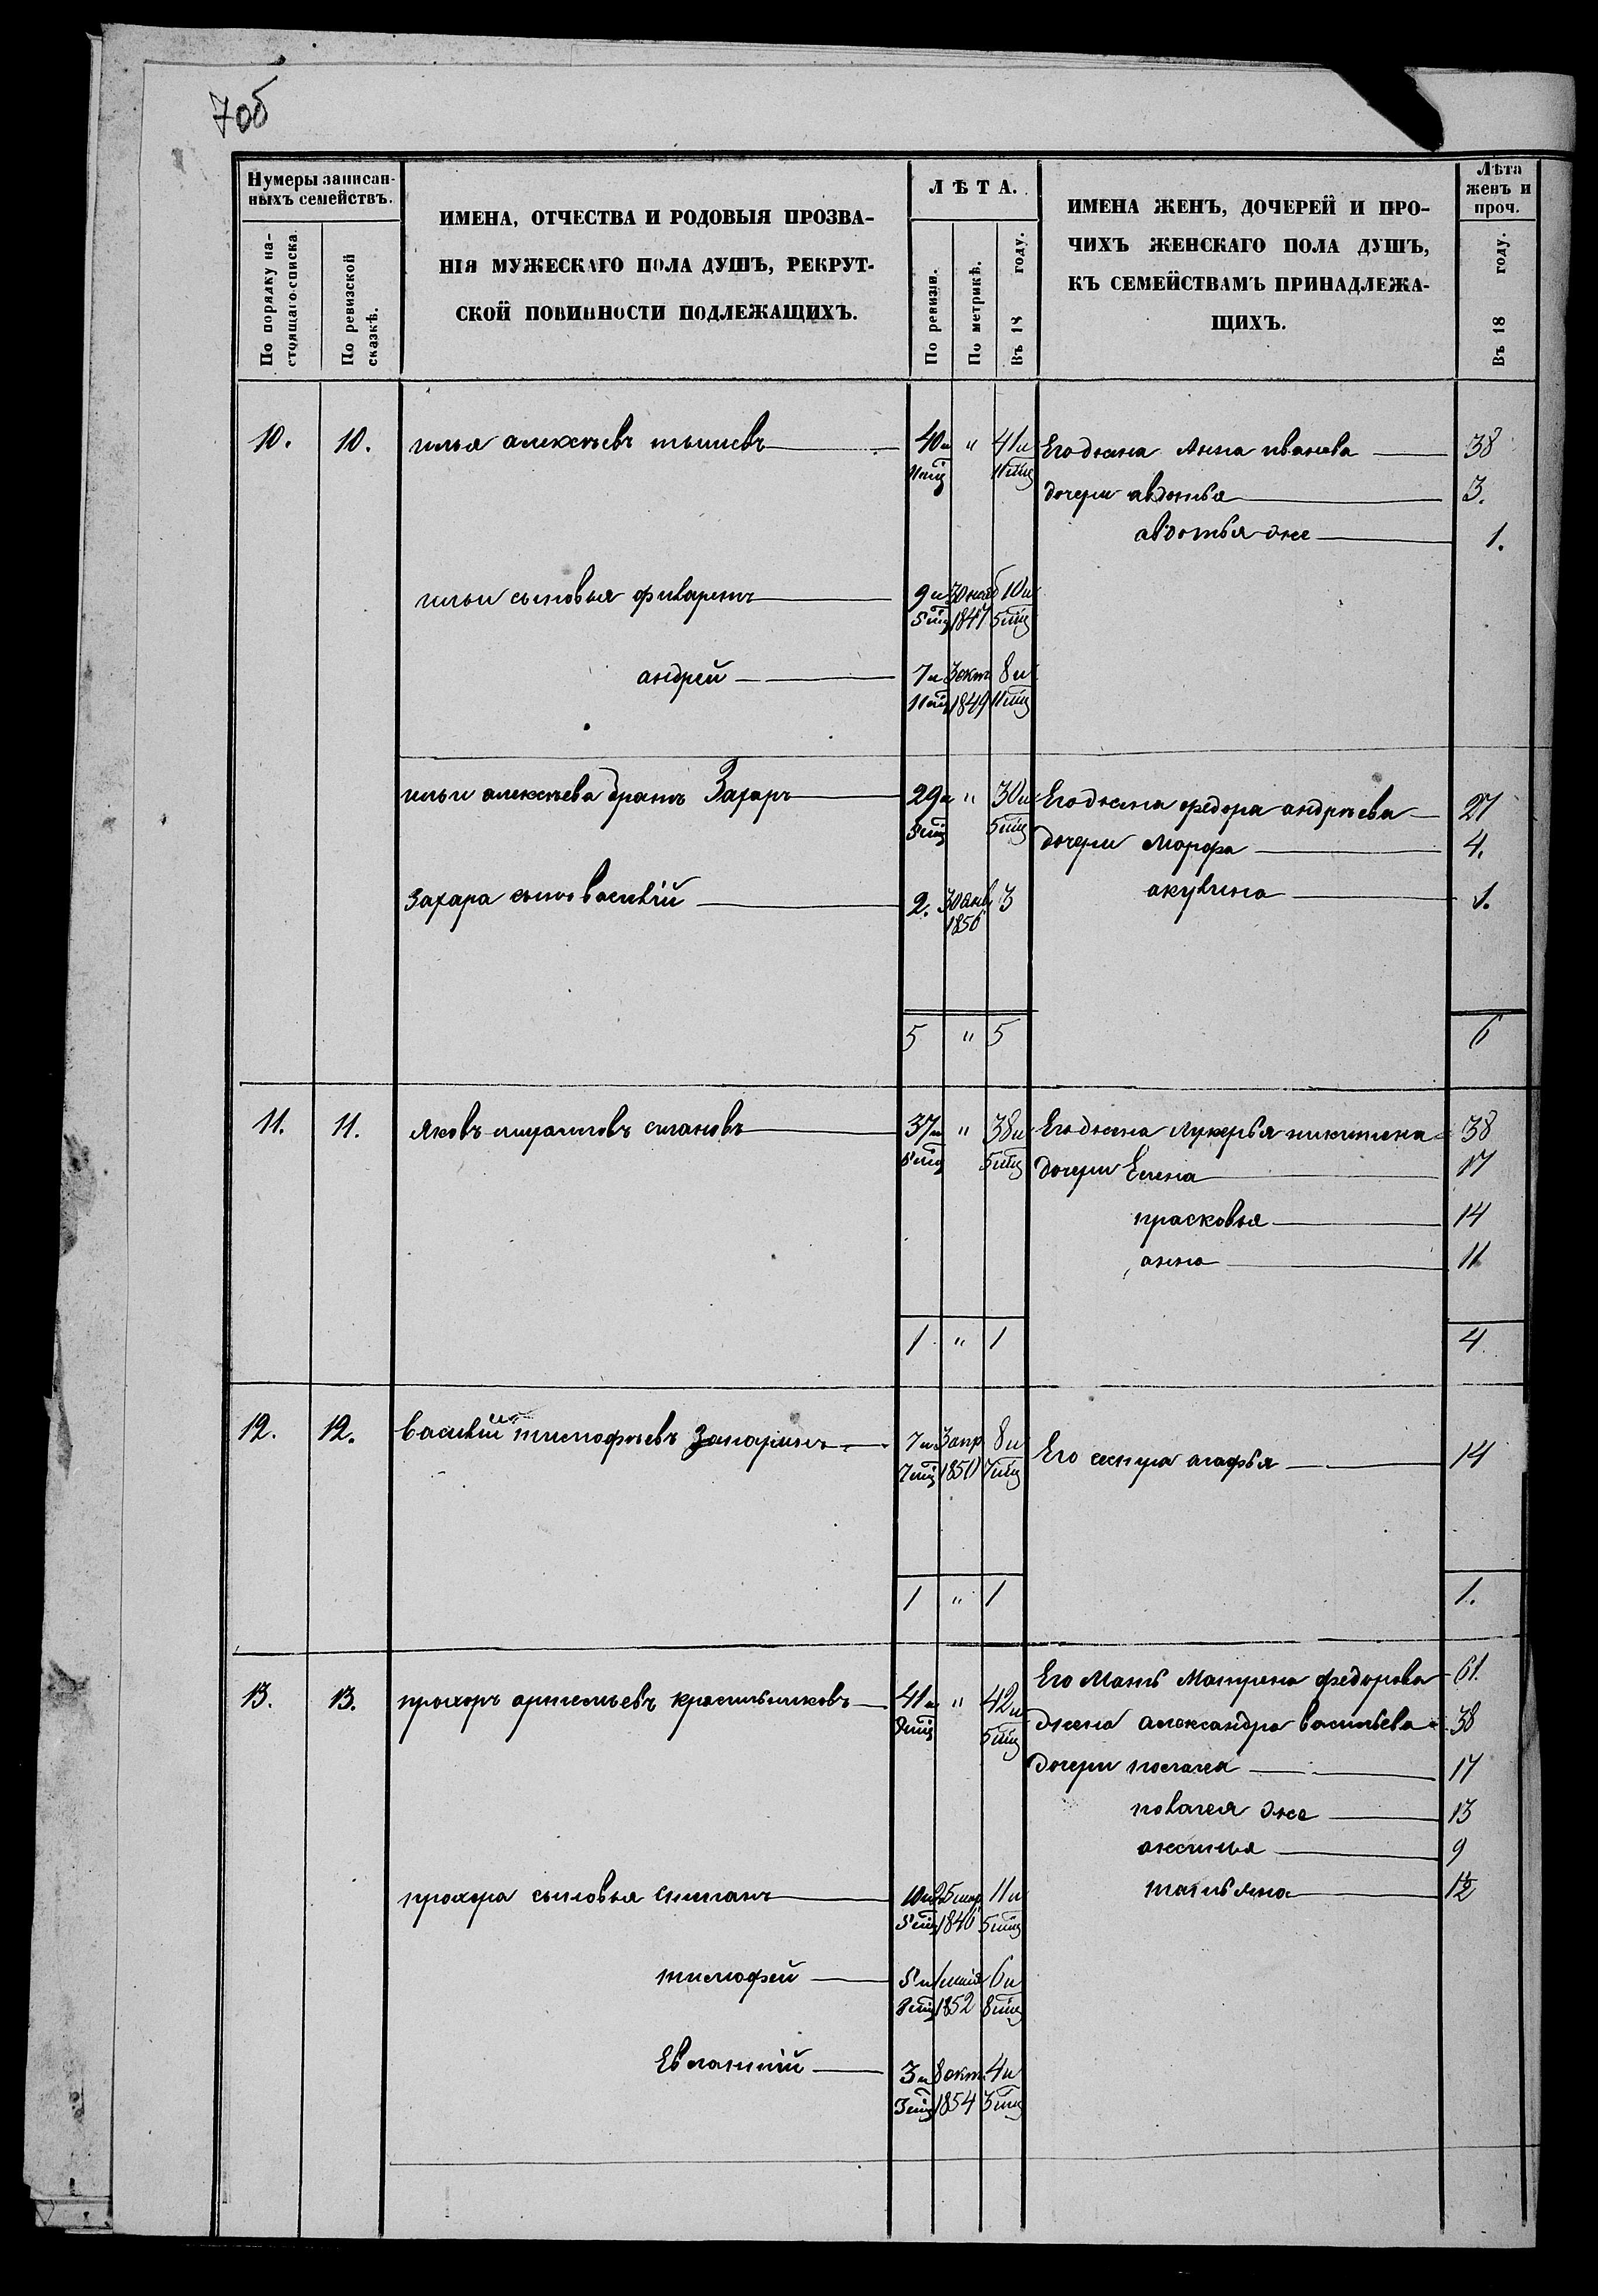 7об
Нумеры записан-
ныхъ семействъ.
По порядку на-
стоящаго списка.
По ревизской
сказкѣ.
ИМЕНА, ОТЧЕСТВА И РОДОВЫЯ ПРОЗВА-
НІЯ МУЖЕСКАГО ПОЛА ДУШЪ, РЕКРУТ-
СКОЙ ПОВИННОСТИ ПОДЛЕЖАЩИХЪ.
ЛѢТА.
По ревизіи.
По метрикѣ.
Въ 18 году.
ИМЕНА ЖЕНЪ, ДОЧЕРЕЙ И ПРО-
ЧИХЪ ЖЕНСКАГО ПОЛА ДУШЪ,
КЪ СЕМЕЙСТВАМЪ ПРИНАДЛЕЖА-
ЩИХЪ.
Лѣта
женъ и
проч.
Въ 18 году.
10. 10. илья алексѣевъ 40 и " 41 и Его жена Анна иванова 38
11 мц 11 мц
дочери авдотья 3.
авдотья же 1.
ильи сыновья филаретъ 9 и 30 нояб 10 и
5 мц 1847 5 мц
андрей 7 и 3 окт 8 и
11 мц 1849 11 мц
ильи алексѣева братъ Захаръ 29 и " 30 и Его жена федора андрѣева 27
5 мц 5 мц
дочери Марфа 4.
захара сынъ василій 2. 30 янв 3 акулина 1.
1856
5 " 5 6
11. 11. яковъ степановъ 37 и " 38 и Его жена лукерья никитина 38
5 мц 5 мц
дочери Елена 17
прасковья 14
анна 11
1 " 1 4
12. 12. василій тимофѣевъ 7 и 3 апр 8 и Его сестра агафья 14
7 мц 1850 7 мц
1 " 1 1.
Его Мать Матрена федорова 61
13. 13. прохоръ артемьевъ красильниковъ 41 и " 42 и жена александра васильева 38
5 мц
дочери пелагея 17
пелагея же 13
аксинья 9
прохора сыновья степанъ 10 и 25 мар 11 и татьяна 12
5 мц 1846 5 мц
тимофей 5 и 6 и
8 мц 1852 8 мц
Евлампій 3 и 8 окт. 4 и
3 мц 1854 3 мц